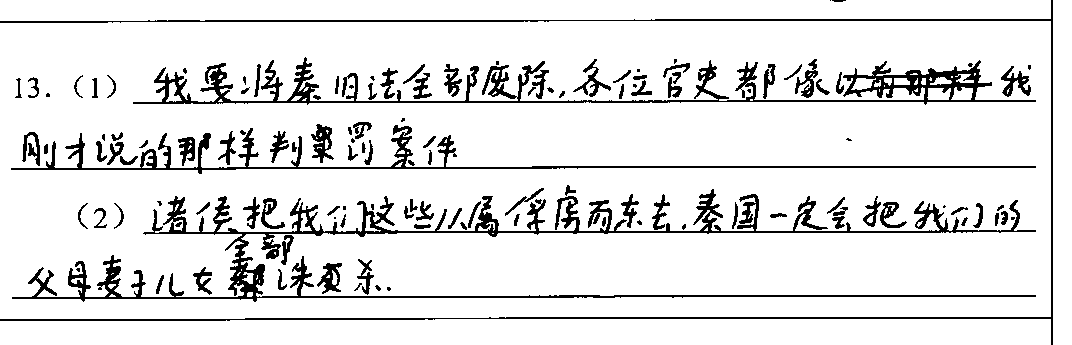 13.（1）我要将秦旧法全部废除,各位官吏都像我
刚才说的那样判罚案件
（2）诸侯把我们这些从属俘虏而东去,秦国一定会把我们的
父母妻子儿女全部诛杀.